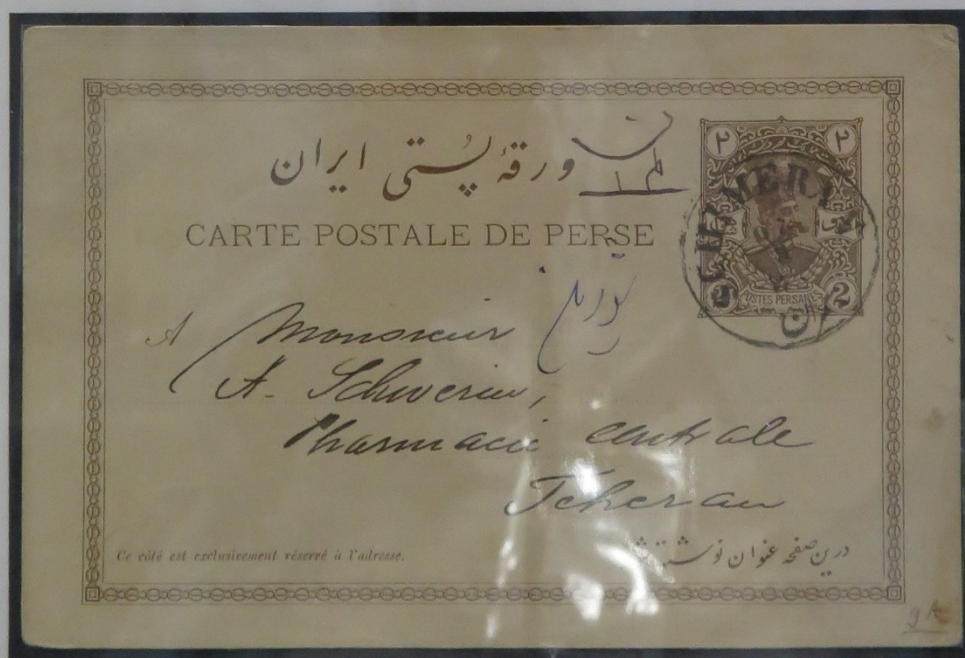 ورقهٔ پُستی ایران
CARTE POSTALE DE PERSE
۲ ۲
POSTES PERSANES
2 2
A Monsieur
A. Schwerin,
Pharmacie Centrale
Téheran
Ce côté est exclusivement réservé à l'adresse.
درین صفحه عنوان نوشته